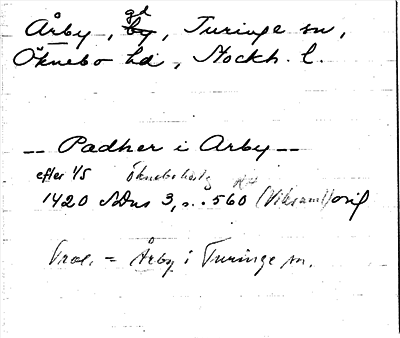 gd
Årby, by, Turinge sn,
Öknebo hd, Stockh. l.
-- Padher i Arby --
efter 1/5 Öknebohärad
1420 SDns 3, s. 560 (Viksaml) orig
Trol. = Årby i Turinge sn.